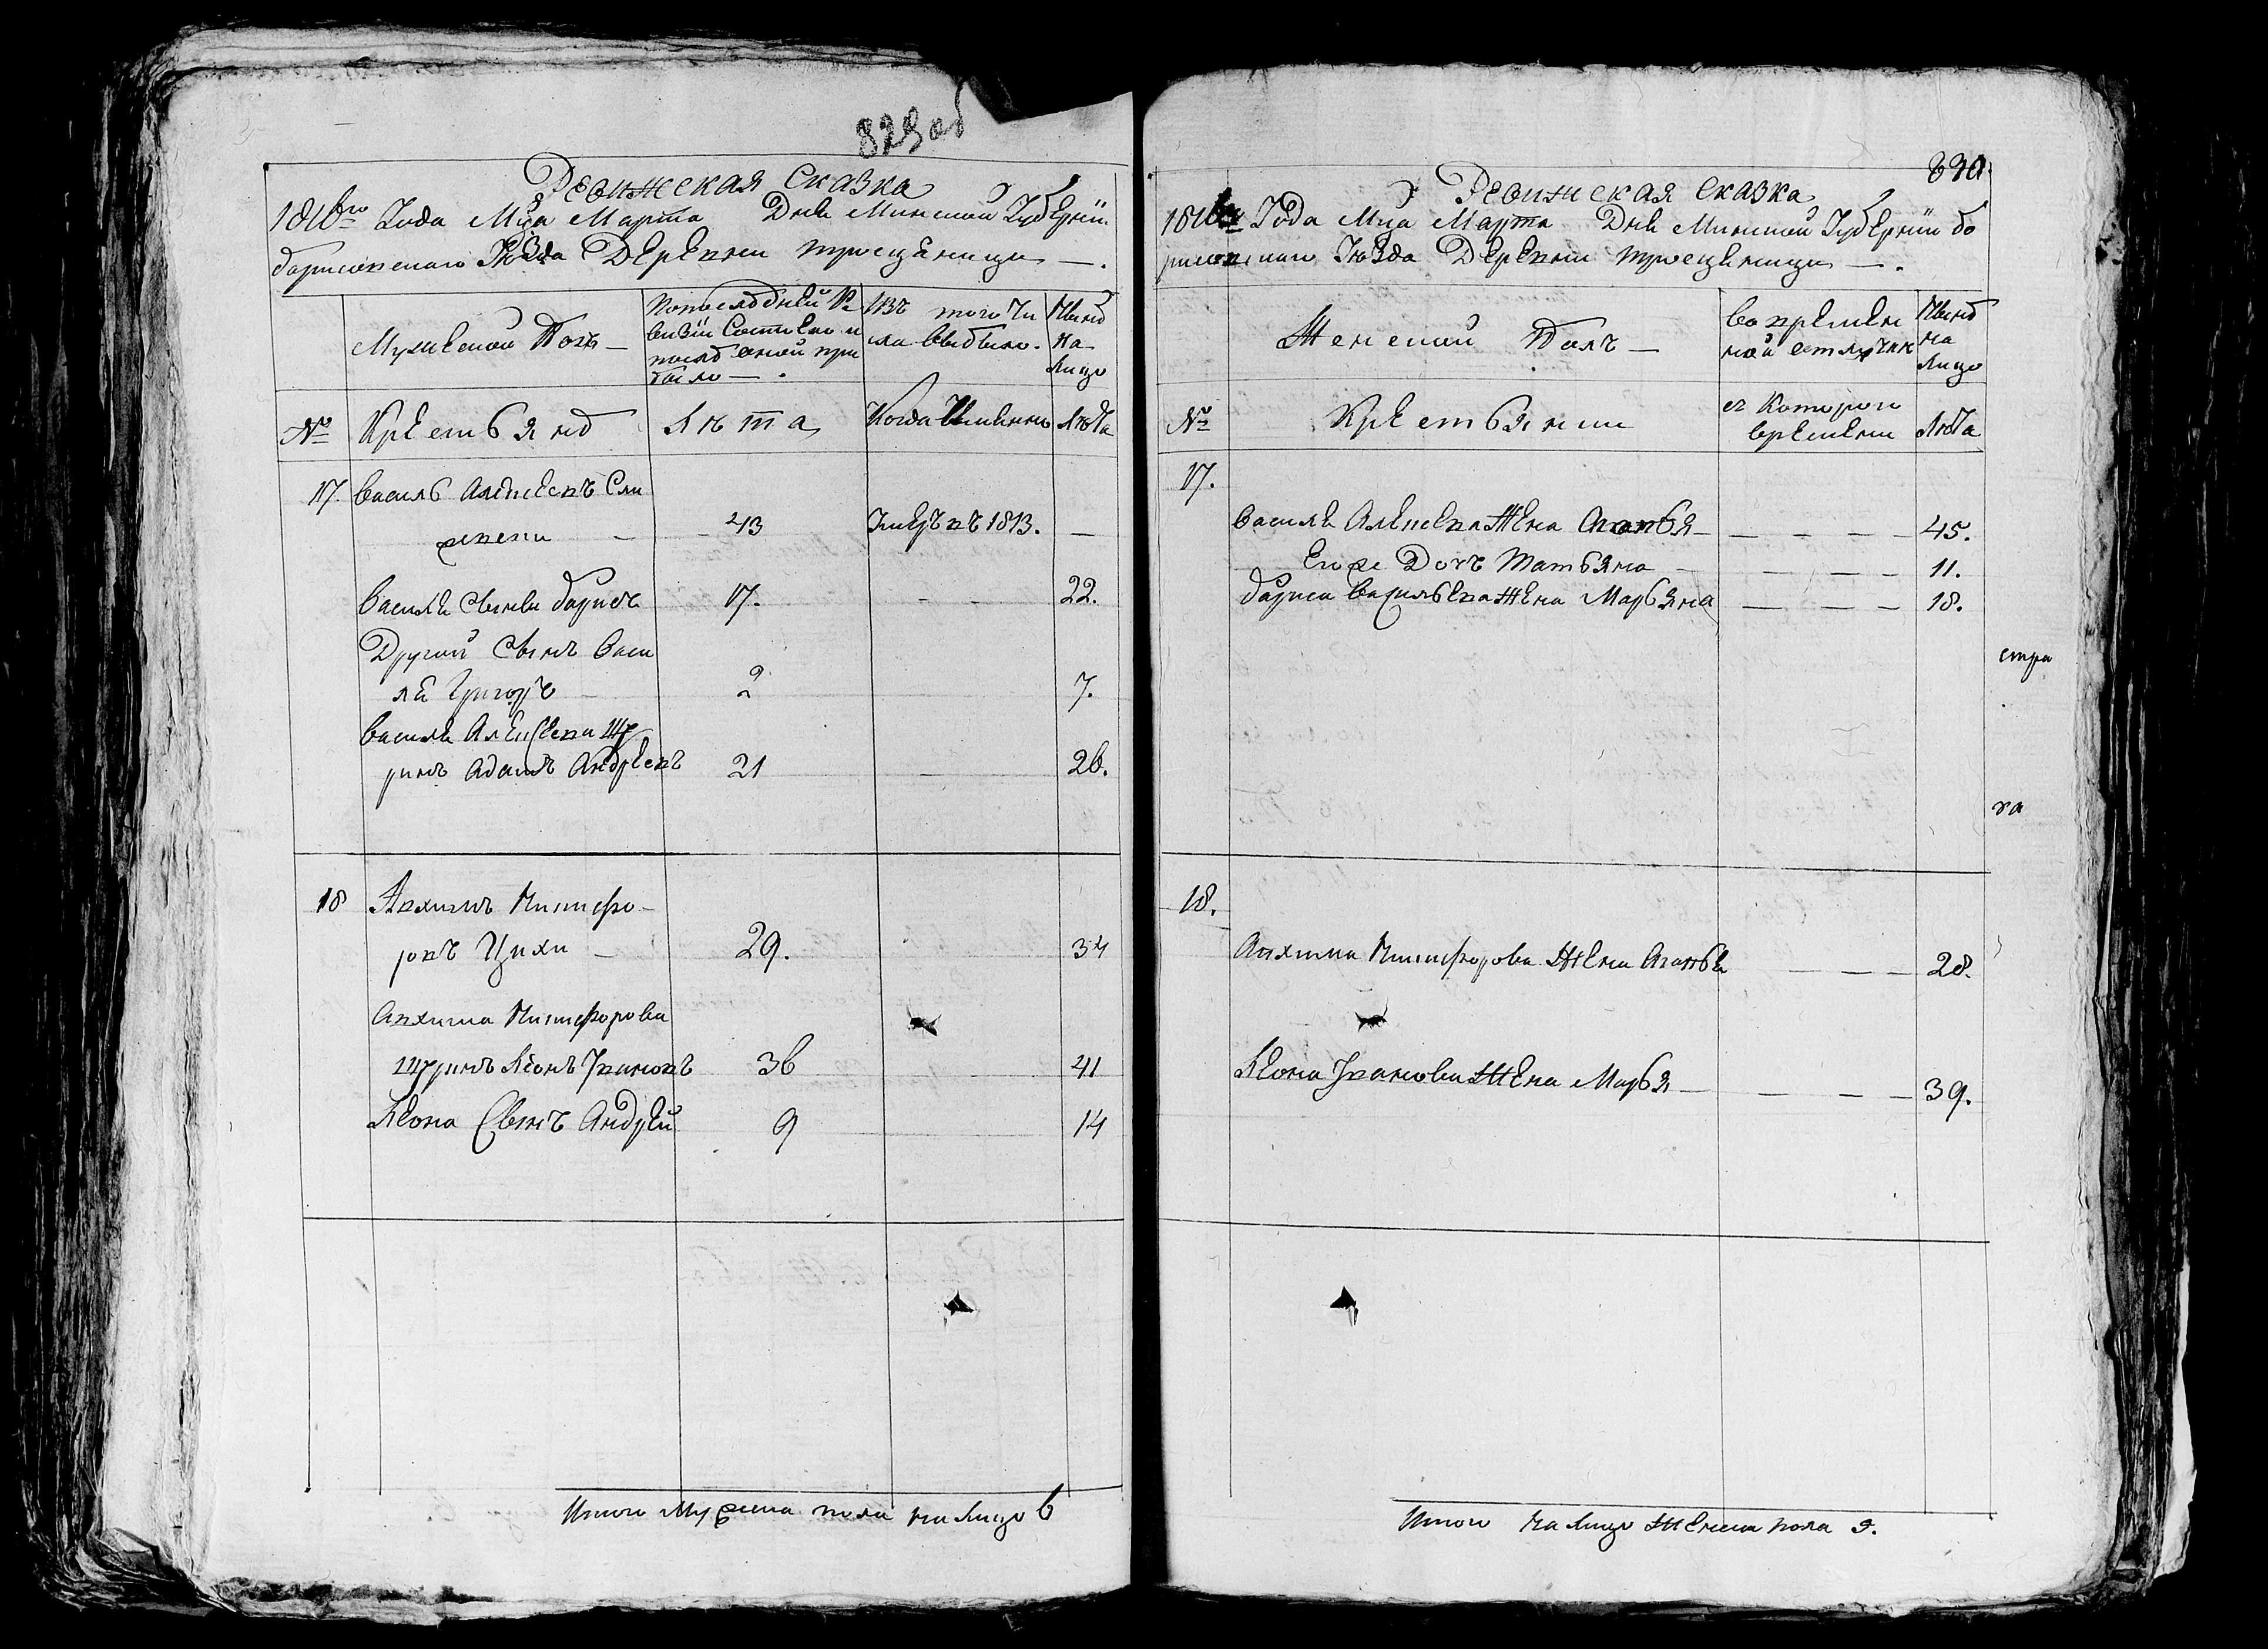 829об
Ревижская Сказка
1816го Года Мца Марта Дня Минской Губернiи
борисовскаго Уѣзда Деревни тросцѣницы —.
Мужеской Полъ —
По последней Ре
визiи Состояло и
послѣ оной при
было — .
Изъ того Чи
сла выбыло.
Нынѣ
На
Лицо
№
Крестьянѣ
Лѣта
Когда Имянно
Лѣта
17. Василь Алексеевъ
43 Умеръ въ 1813. —
Василя Сынъ барисъ 17. — — 22.
Другой Сынъ Васи
ля Григоръ — 2 7.
Василя Алексеева Шу
ринъ Адамъ Андреевъ 21 — 26.
18 Авхимъ Никифо-
ровъ Цихи — 29. 34
Авхима Никифорова
шуринъ Леонъ Ивановъ 36 41
Леона Сынъ Андрей 9 14
Итого Мужеска пола на Лицо 6
830.
Ревижская Сказка
1816го Года Мца Марта Дня Минской Губернiи бо
рисовскаго Уѣзда Деревни тросценицы — .
Женской Полъ —
Во времен
ной отлучке
Нынѣ
на
Лицо
№
Крестьянки
съ Которого
времени
Лѣта
17.
Василя Алексеева Жена Агапья — — — — 45.
Егоже Дочь Татьяна — — — — 11.
бариса Васильева Жена Марьяна — — — 18.
стра
ва
18.
Авхима Никифорова Жена Агапья — — — 28.
Леона Иванова Жена Марья — — — — 39.
Итого на Лицо Женска пола 5.